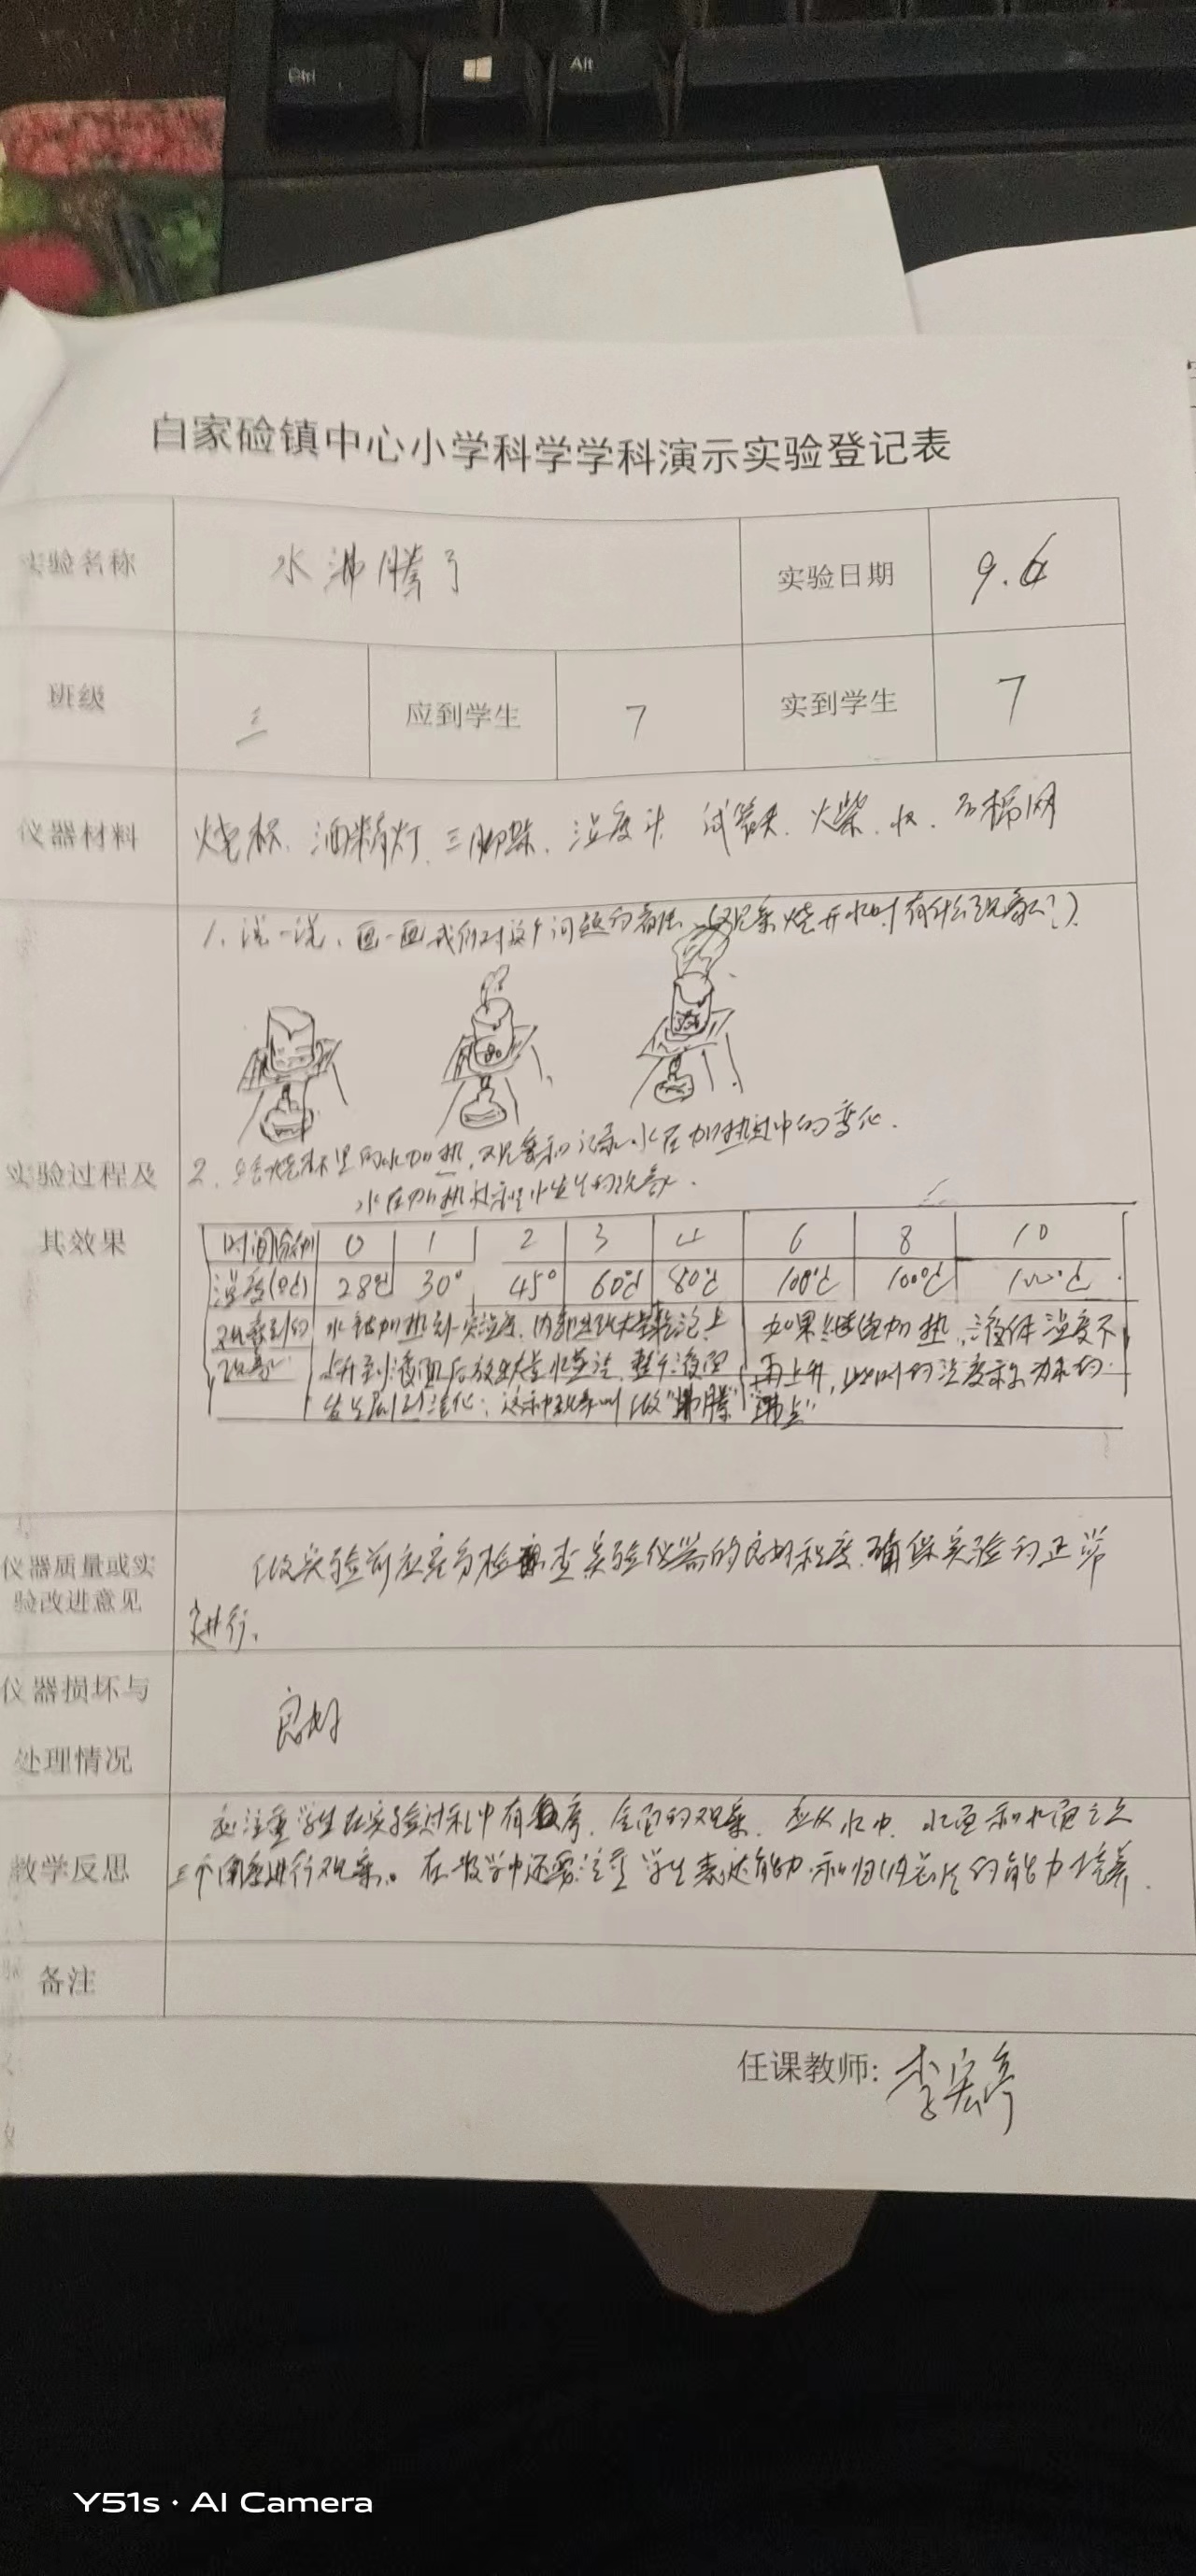 Ctrl
Alt
白家硷镇中心小学科学学科演示实验登记表
实验名称 水沸腾了 实验日期 9.6
班级 三 应到学生 7 实到学生 7
仪器材料 烧杯、酒精灯、三脚架、温度计、试管夹、火柴、水、石棉网
1、说一说、画一画我们对这个问题的看法、(观察烧开水时有什么现象?)
实验过程及
其效果
2、给烧杯里的水加热,观察和记录水在加热过中的变化.
水在加热过程中发生的现象.
时间(分钟) 0 1 2 3 4 6 8 10
温度(℃) 28℃ 30° 45° 60℃ 80℃ 100℃ 100℃ 100℃
观察到的
现象
水被加热到一定温度,内部出现大量气泡上
上升到液面后放出大量水蒸汽,整个液面
发生剧烈汽化;这种现象叫做“沸腾”
如果继续加热,液体温度不
再上升,此时的温度称为水的
“沸点”
仪器质量或实
验改进意见
做实验前应充分检查实验仪器的良好程度,确保实验的正常
进行.
仪器损坏与
处理情况
良好
教学反思
应注重学生在实验过程中有序、全面的观察、应从水中、水面和水面之上
三个角度进行观察。在教学中还需注重学生表达能力和归纳总结的能力培养.
备注
任课教师: 李宏
Y51s · AI Camera